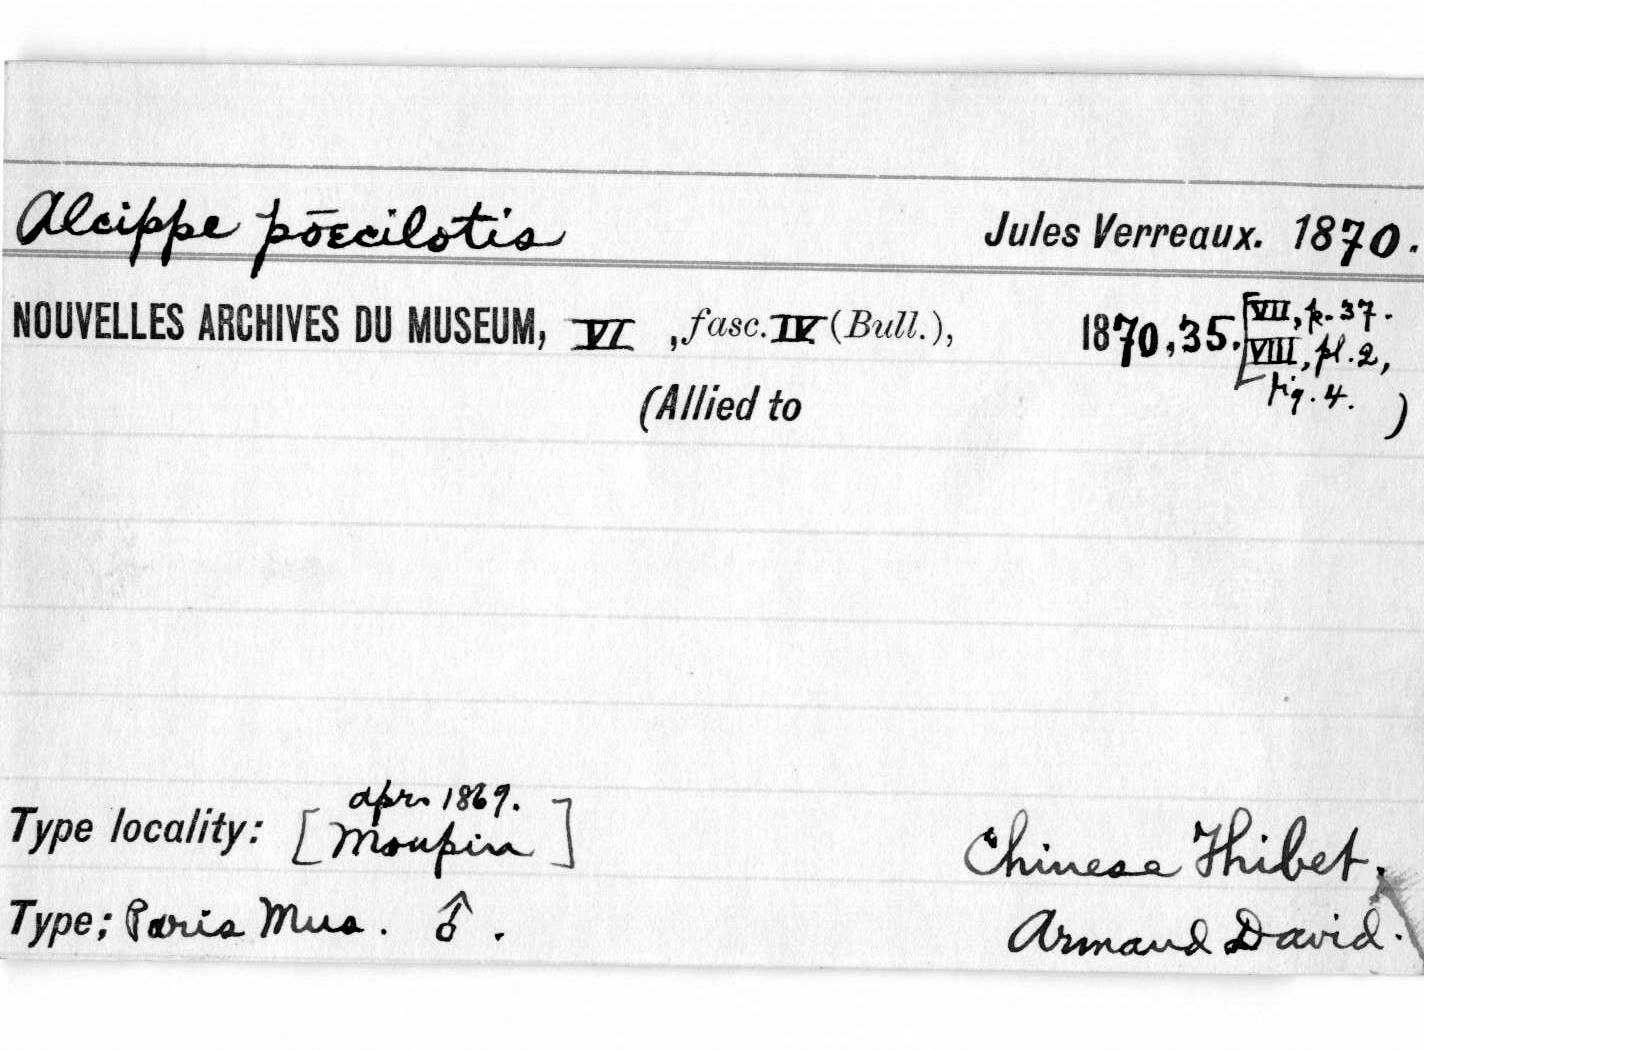 Alcippe pōecilotis Jules Verreaux. 1870.
NOUVELLES ARCHIVES DU MUSEUM, VI , fasc. IV (Bull.), 1870, 35. [VII, p. 37.
VIII, pl. 2,
fig. 4.
(Allied to )
apr. 1869.
Type locality: [Moupin] Chinese Thibet.
Type; Paris Mus. ♂. Armand David.